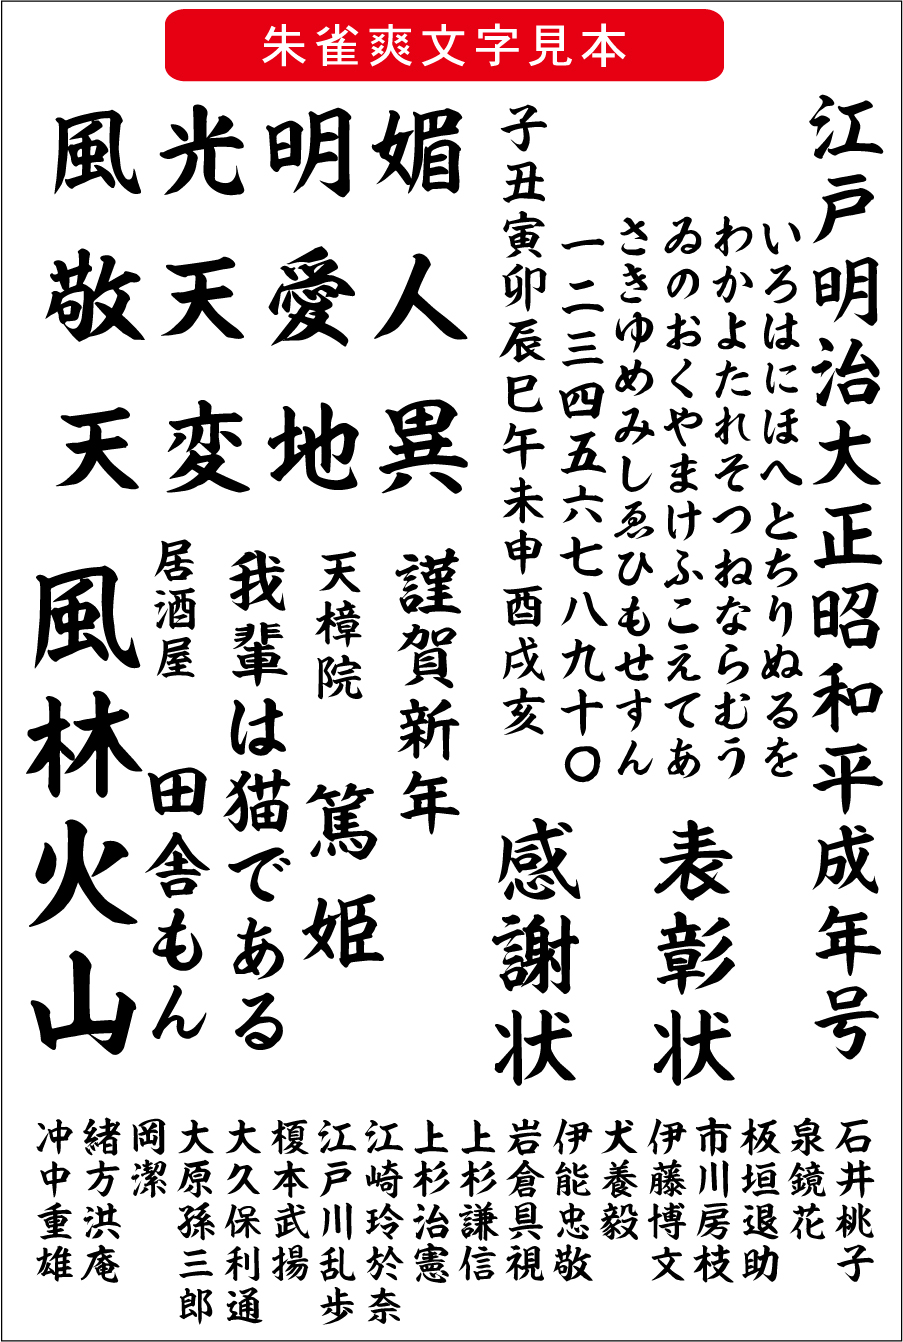 朱雀爽文字見本
江戸明治大正昭和平成年号
いろはにほへとちりぬるを
わかよたれそつねならむう
ゐのおくやまけふこえてあ
さきゆめみしゑひもせすん
一二三四五六七八九十〇
子丑寅卯辰巳午未申酉戌亥
表彰状
感謝状
風光明媚
敬天愛人
天変地異
謹賀新年
天樟院 篤姫
我輩は猫である
居酒屋 田舎もん
風林火山
石井桃子
泉鏡花
板垣退助
市川房枝
伊藤博文
犬養毅
伊能忠敬
岩倉具視
上杉謙信
上杉治憲
江崎玲於奈
江戸川乱歩
榎本武揚
大久保利通
大原孫三郎
岡潔
緒方洪庵
冲中重雄